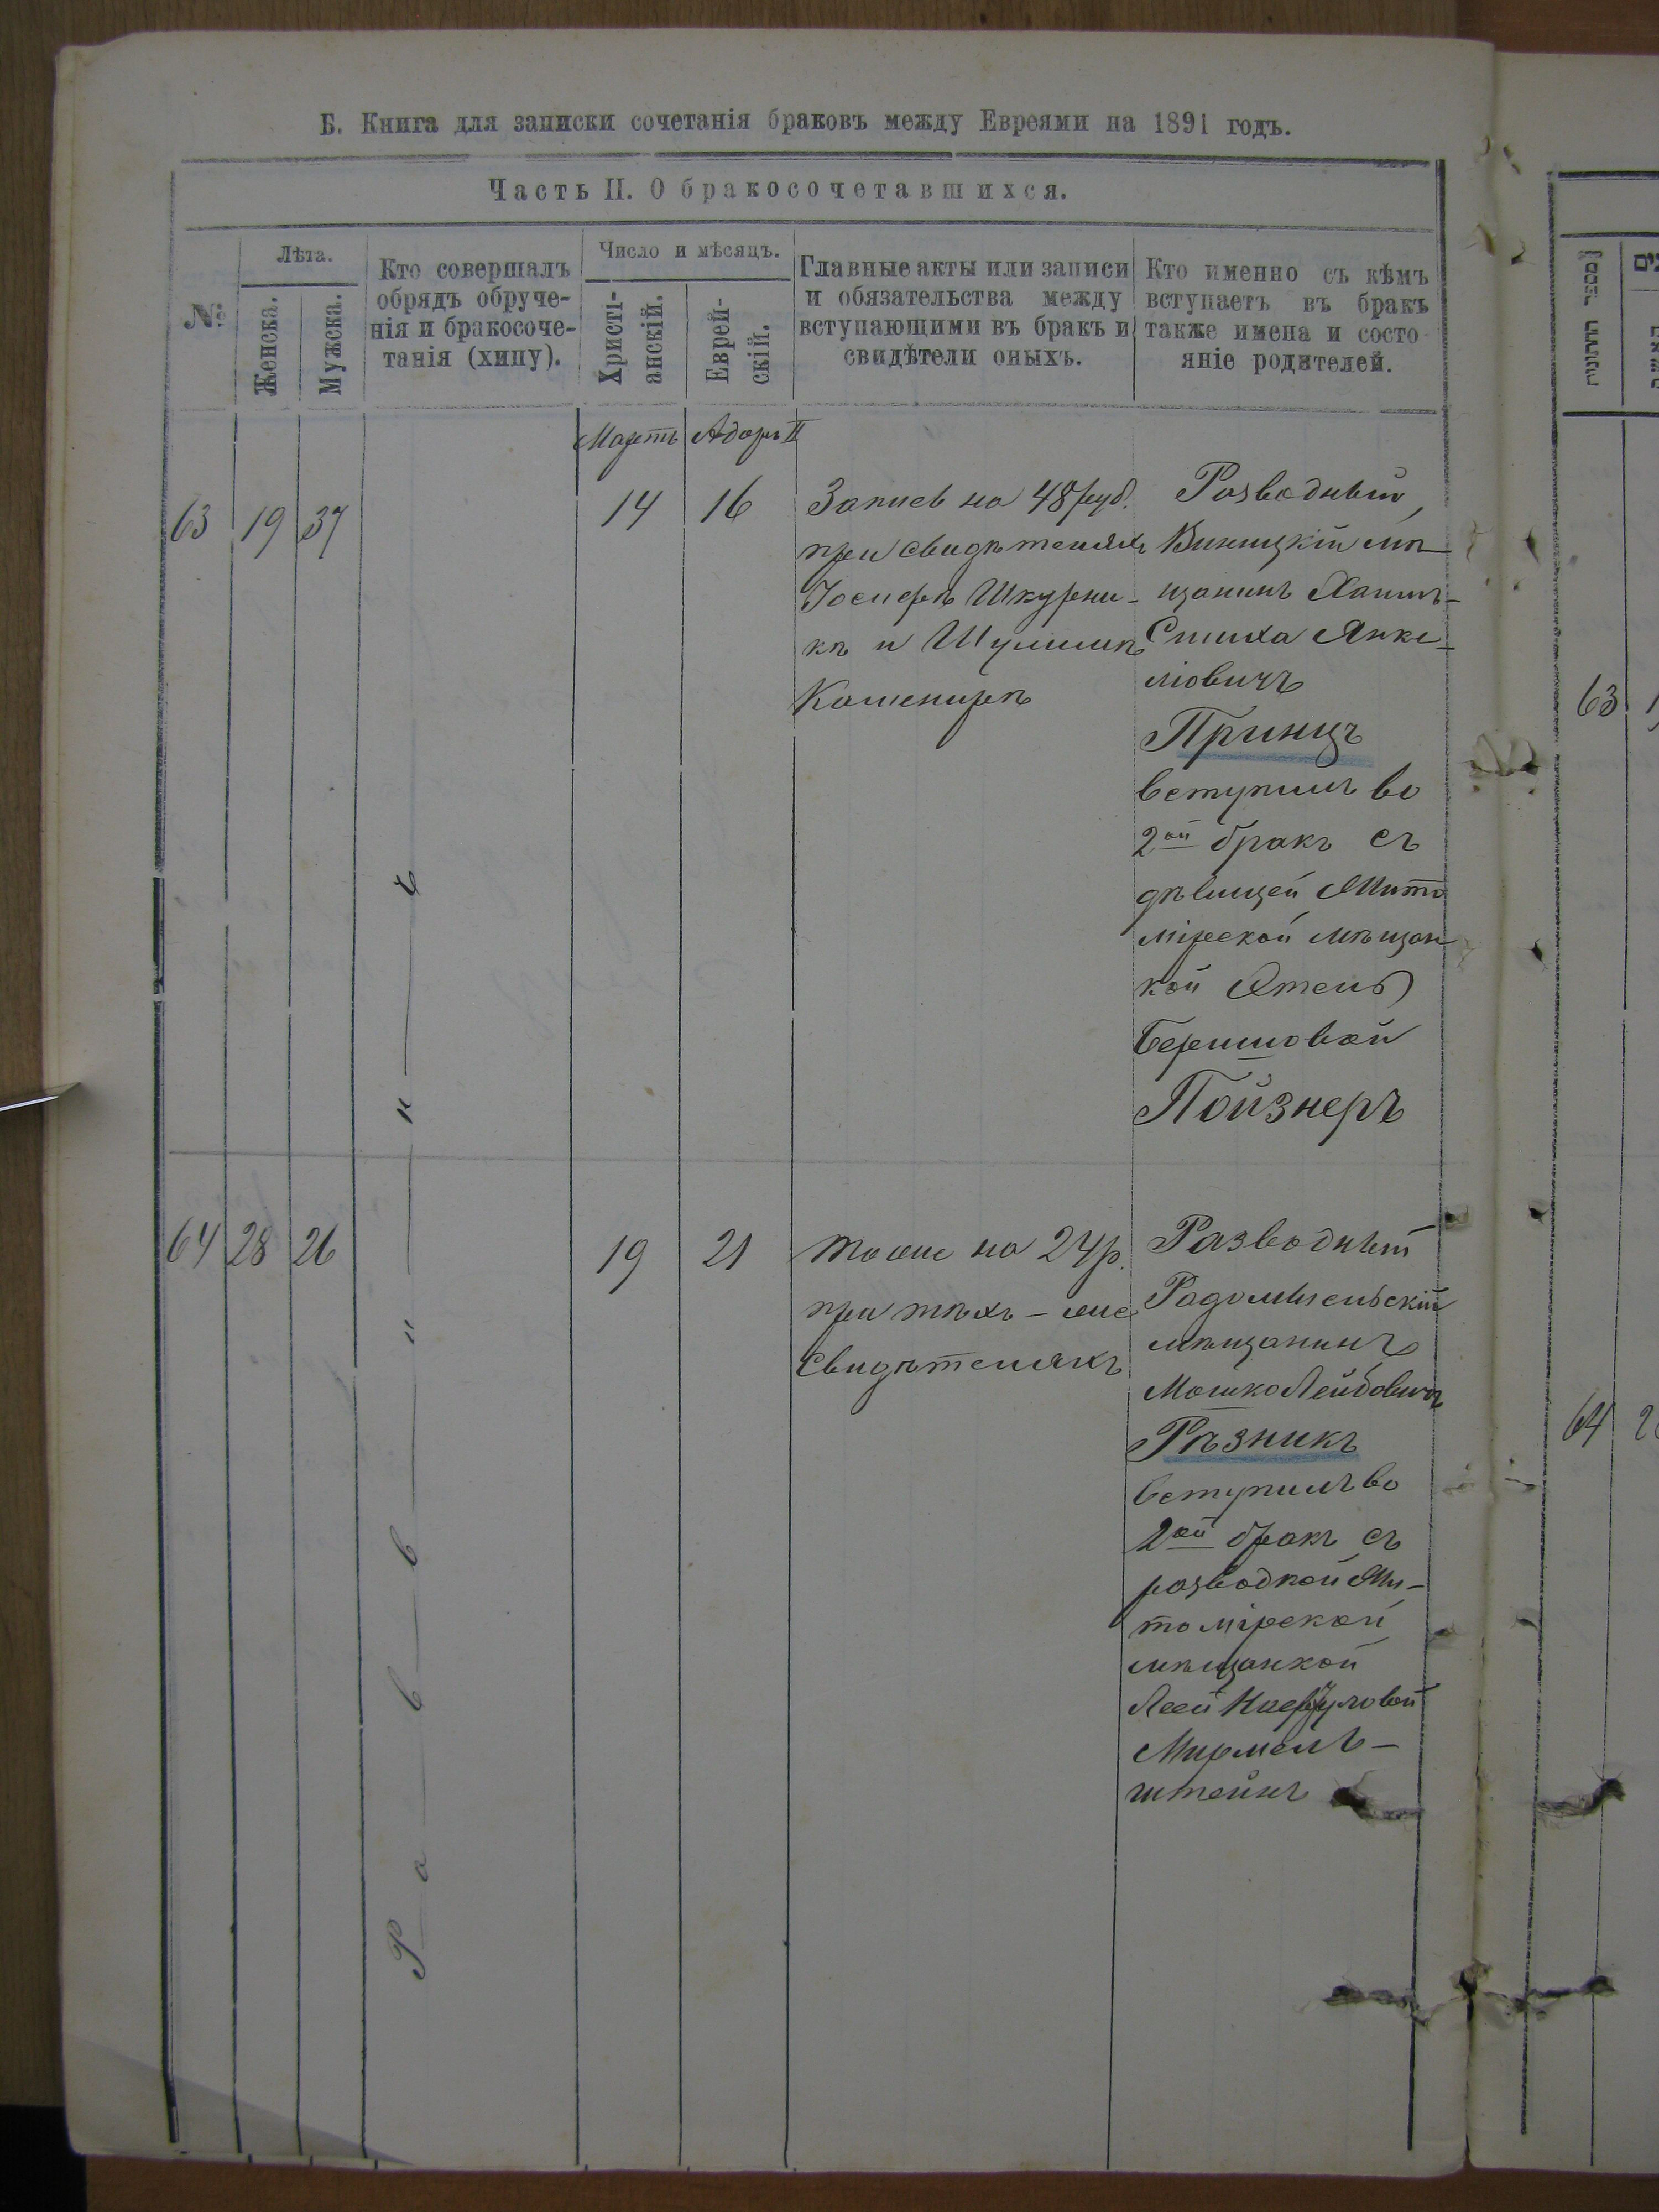 Б. Книга для записки сочетанія браковъ между Евреями на 1891 годъ.
Часть II. О бракосочетавшихся.
№
Лѣта.
Женска.
Мужска.
Кто совершалъ
обрядъ обруче-
нія и бракосоче-
танія (хипу).
Число и мѣсяцъ.
Христі-
анскій.
Еврей-
скій.
Главные акты или записи
и обязательства между
вступающими въ бракъ и
свидѣтели оныхъ.
Кто именно съ кѣмъ
вступаетъ въ бракъ
также имена и состо-
яніе родителей.
מספר החתונות
Мартъ
Адаръ II
63
19
37
14
16
Запись на 48 руб.
при свидѣтеляхъ
Іосифѣ Шкурни-
кѣ и Шулимѣ
Кашенирѣ
Разводный
Виницкій мѣ-
щанинъ Хаимъ-
Симха Янке-
ліовичъ
Принцъ
вступилъ во
2ой бракъ съ
дѣвицей Жито
мірской мѣщан
кой Этель
Бершковой
Пойзнеръ
64
28
26
19
21
тоже на 24 р.
при тѣхъ-же
свидѣтеляхъ
Разводный
Радомысльскій
мѣщанинъ
Мошко Лейбовичъ
Рѣзникъ
вступилъ во
2ой бракъ съ
разводкой Жи-
томірской
мѣщанкой
Леей
Мирмель-
штейнъ
Раввинъ
63
64